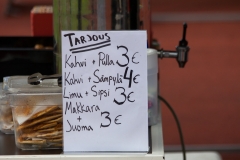 TARJOUS
Kahvi + Pulla 3€
Kahvi + Sämpylä 4€
Limu + Sipsi 3€
Makkara
+
Juoma 3€